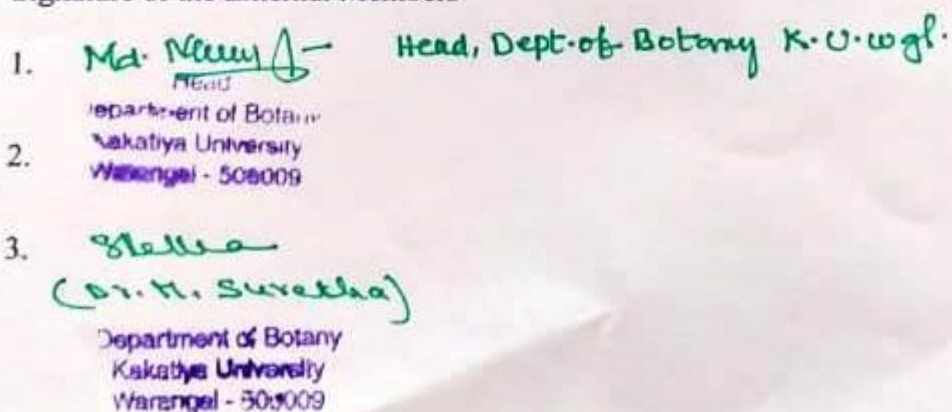 Signature of the External Members
1. Md. Head, Dept. of Botany K.U. wgl.
Head
Department of Botany
2. Kakatiya University
Warangal - 506009
3.
(Dr. M. Surekha)
Department of Botany
Kakatiya University
Warangal - 506009